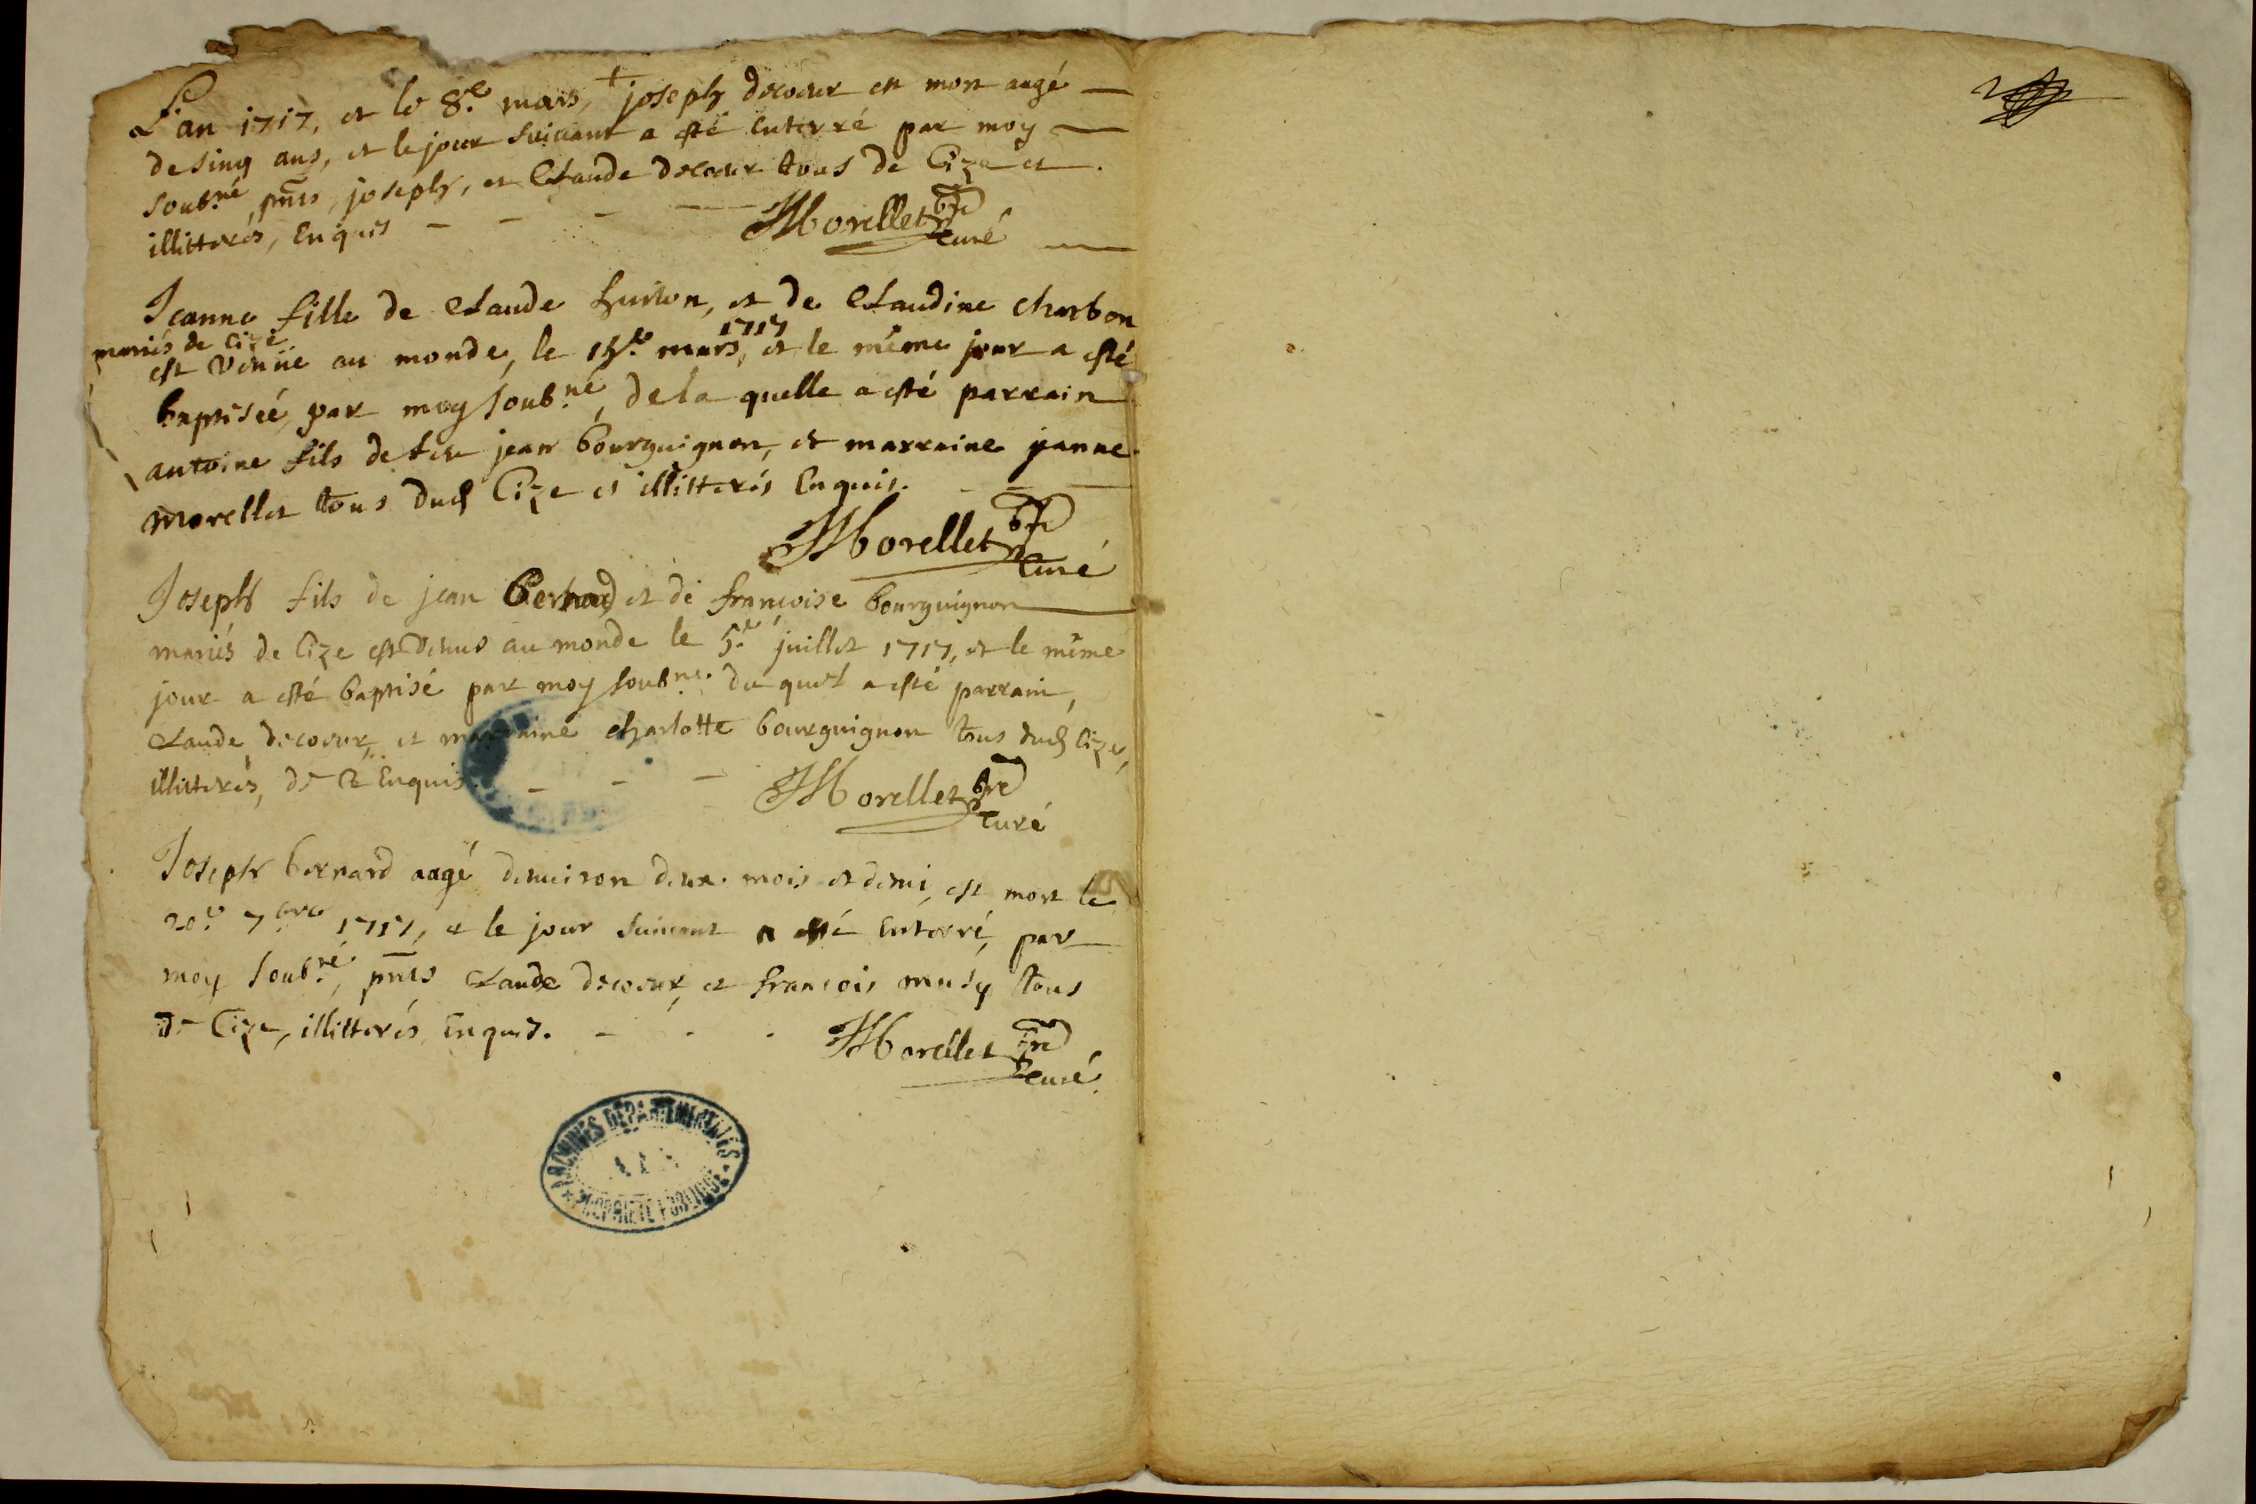 L'an 1717, et le 8.e mars, + joseph decoeur est mort aagé
de sinq ans, et le jour suivant a esté enterré par moy
soub.né, pnts, joseph, et Claude decoeur tous de Cize et
illitterés, Enquis
Morellet pre
curé
Jeanne fille de Claude hurion, et de Claudine charbon
mariés de Cize
1717
est venue au monde, le 15.e mars, et le même jour a esté
baptiséé, par moy soub.né, de la quelle a esté parrain
antoine fils de feu jean bourguignon, et marraine jeanne
morellet tous dud Cize et illitterés Enquis.
Morellet pre
curé
Joseph fils de jean Bernard et de françoise bourguignon
mariés de Cize est venus au monde le 5.e juillet 1717, et le même
jour a esté baptisé par moy soub.né. du quel a esté parrain,
Claude decoeur, et marraine charlotte bourguignon tous dud Cize,
illitterés, de ce Enquis.
Morellet pre
curé
Joseph bernard aagé denviron deux mois et demi, est mort le
20.e 7.bre 1717, et le jour suivant a esté enterré, par
moy soub.né, pnts Claude decoeur, et françois musy tous
de Cize, illitterés, Enquis.
Morellet pre
curé
ARCHIVES DÉPARTEMENTALES
AIN
PROPRIÉTÉ PUBLIQUE